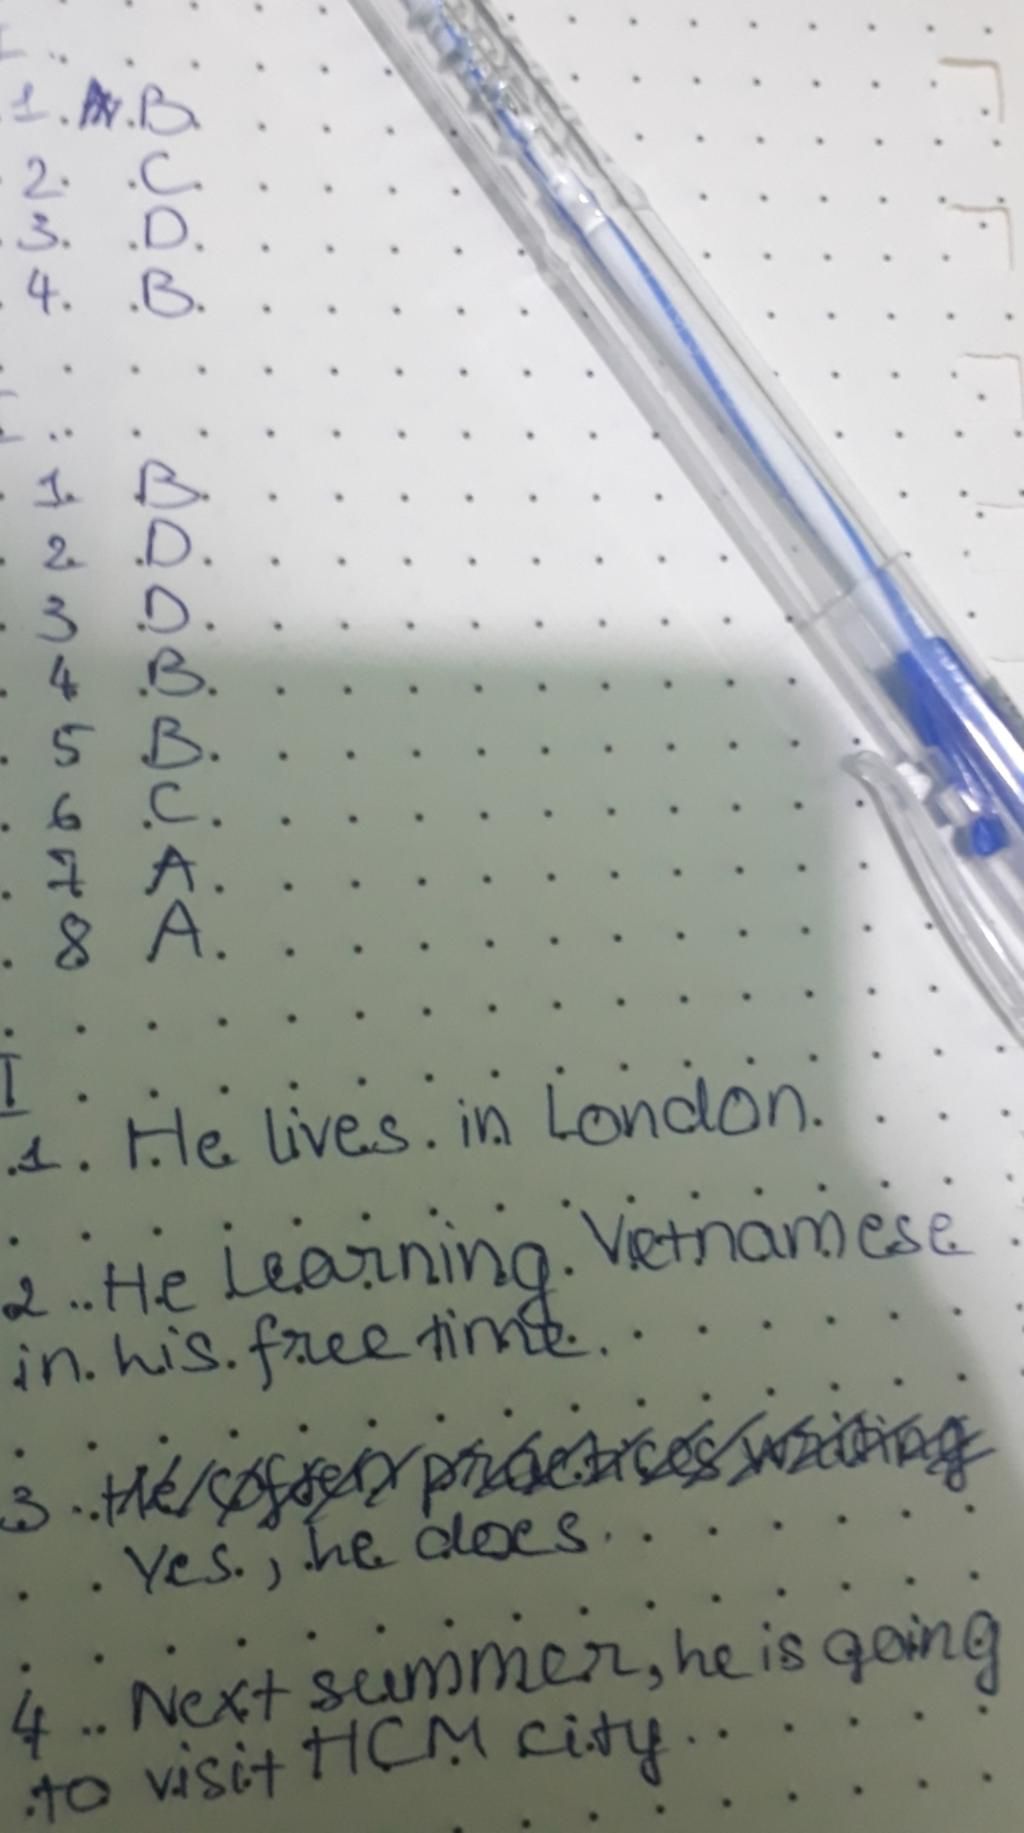 I
1. B
2. C
3. D
4. B
I
1. B
2 D
3 D
4 B
5 B
6 C
7 A
8 A
I
1. He lives in London.
2. He Learning Vietnamese
in his free time.
3. He often practices writing
Yes, he does.
4. Next summer, he is going
to visit HCM city.